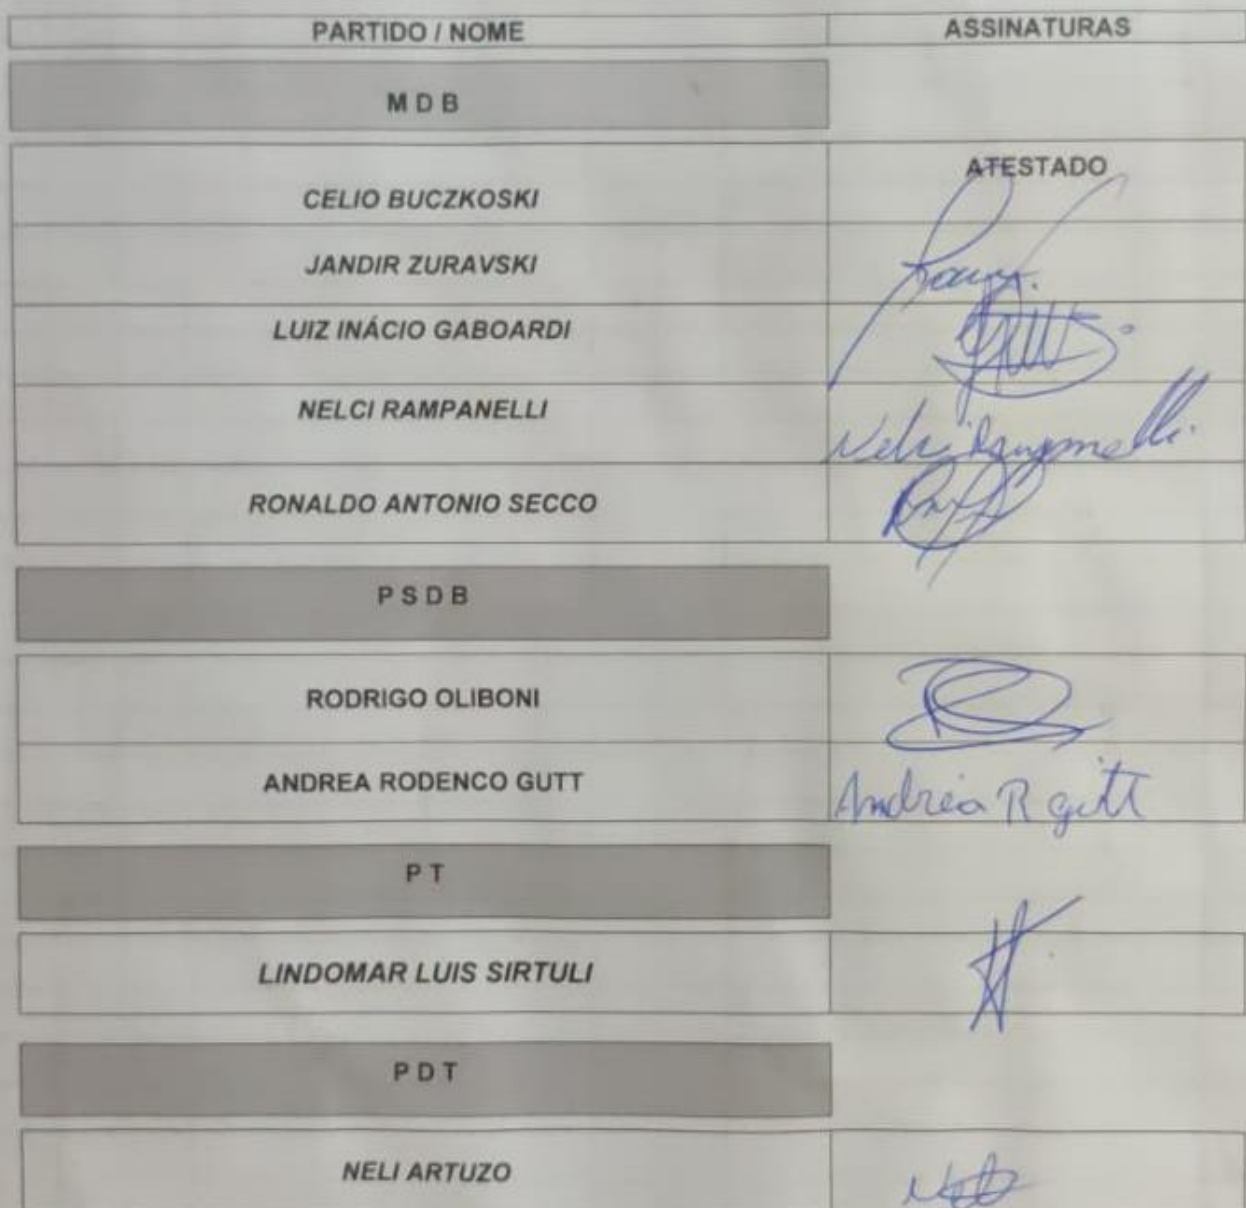 PARTIDO / NOME ASSINATURAS
M D B
CELIO BUCZKOSKI ATESTADO
JANDIR ZURAVSKI
LUIZ INÁCIO GABOARDI
NELCI RAMPANELLI Nelci Rampanelli
RONALDO ANTONIO SECCO
P S D B
RODRIGO OLIBONI
ANDREA RODENCO GUTT Andréa R gutt
P T
LINDOMAR LUIS SIRTULI
P D T
NELI ARTUZO